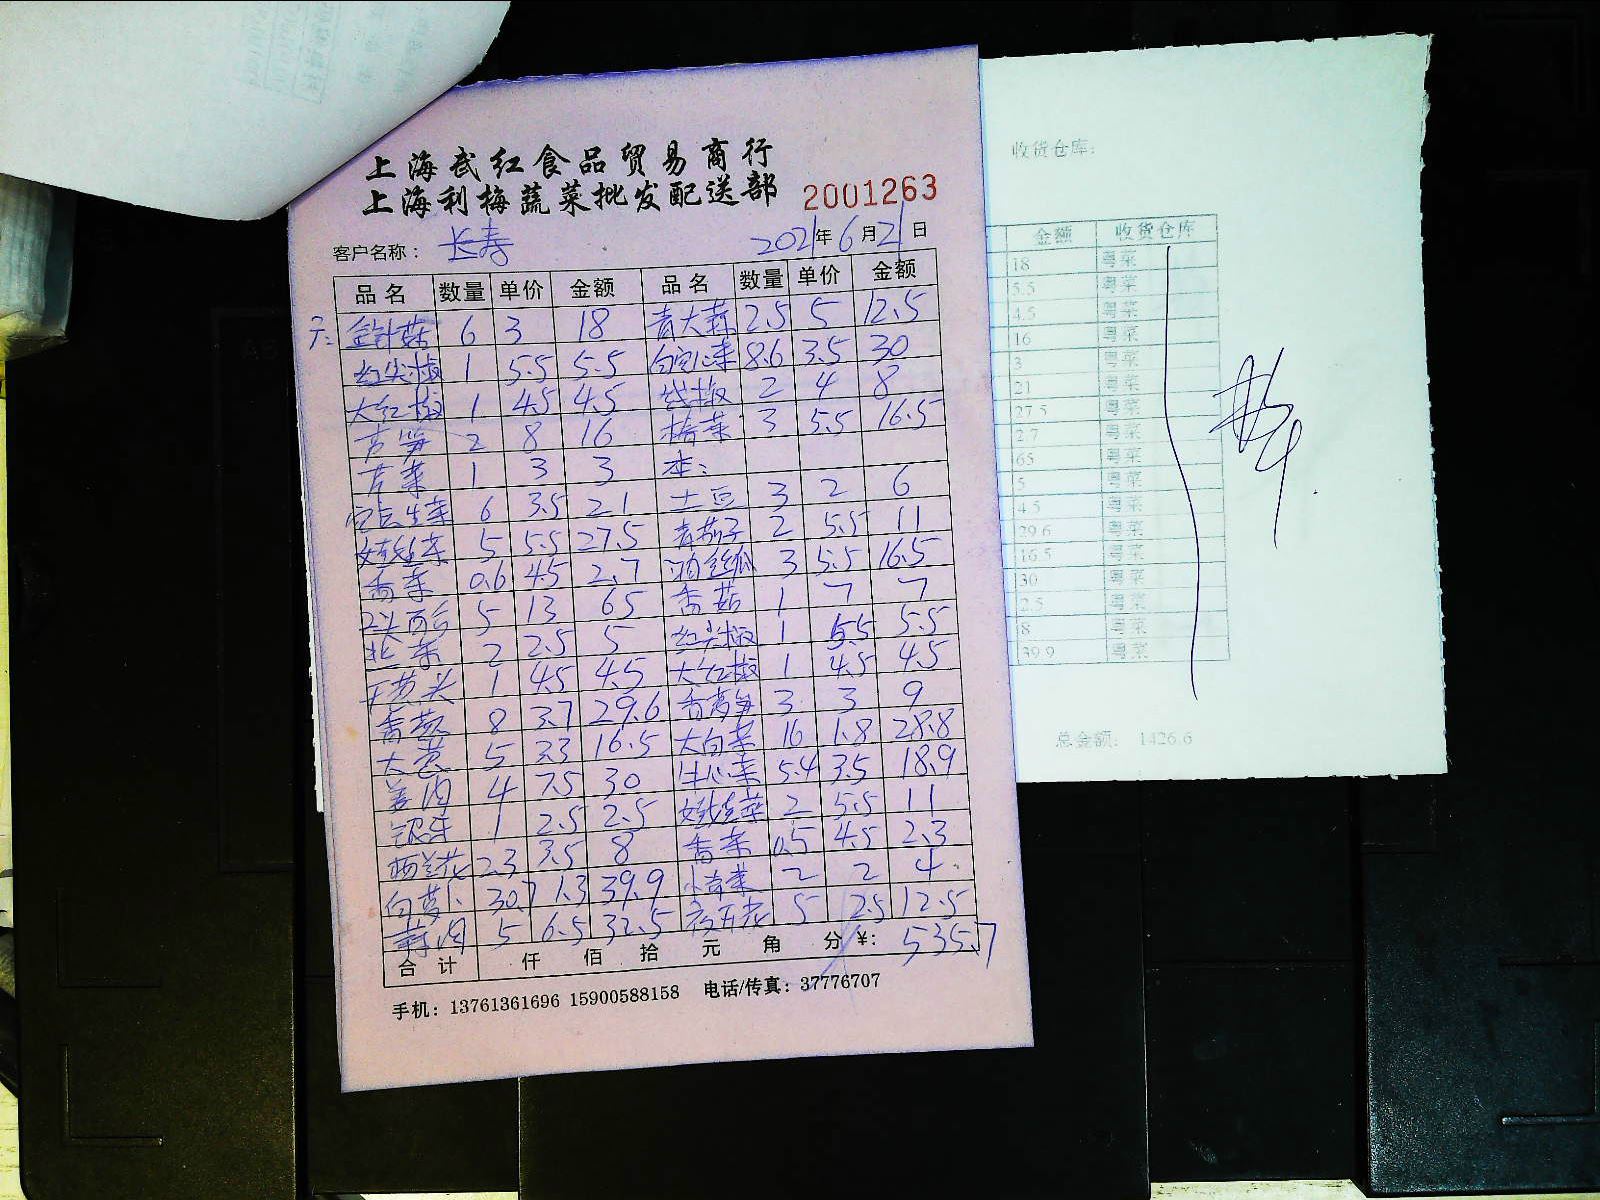 上海武红食品贸易商行
上海利梅蔬菜批发配送部 2001263
客户名称： 长寿 2021年6月21日
品名 数量 单价 金额 品名 数量 单价 金额
金针菇 6 3 18 青大蒜 2.5 5 12.5
红尖椒 1 5.5 5.5 白空心菜 8.6 3.5 30
大红椒 1 4.5 4.5 线椒 2 4 8
芦笋 2 8 16 3 5.5 16.5
芹菜 1 3 3 本：
生菜 6 3.5 21 土豆 3 2 6
5 5.5 27.5 青茄子 2 5.5 11
香菜 0.6 4.5 2.7 丝瓜 3 5.5 16.5
5 13 65 香菇 1 7 7
2 2.5 5 红尖椒 1 5.5 5.5
干葱头 1 4.5 4.5 大红椒 1 4.5 4.5
香葱 8 3.7 29.6 香莴笋 3 3 9
大葱 5 3.3 16.5 大白菜 16 1.8 28.8
姜肉 4 7.5 30 牛心菜 5.4 3.5 18.9
银牙 1 2.5 2.5 2 5.5 11
西兰花 2.3 3.5 8 香菜 0.5 4.5 2.3
白萝卜 30.7 1.3 39.9 小青菜 2 2 4
蒜肉 5 6.5 32.5 5 2.5 12.5
合计 仟 佰 拾 元 角 分 ¥: 535.7
手机：13761361696 15900588158 电话/传真：37776707
收货仓库：
金额 收货仓库
18 粤菜
5.5 粤菜
4.5 粤菜
16 粤菜
3 粤菜
21 粤菜
27.5 粤菜
2.7 粤菜
65 粤菜
5 粤菜
4.5 粤菜
29.6 粤菜
16.5 粤菜
30 粤菜
2.5 粤菜
8 粤菜
39.9 粤菜
总金额： 1426.6